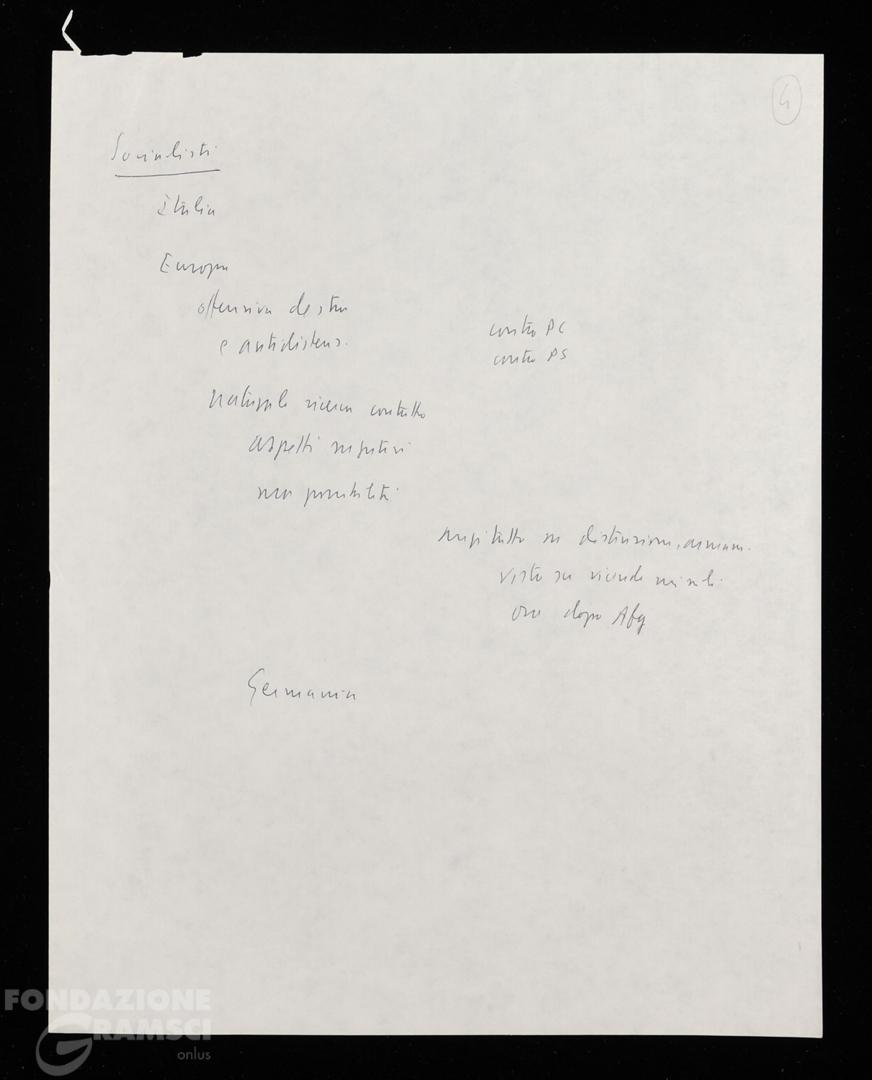 4
Socialisti
Italia
Europa
offensiva destra
e antidistens.
contro PC
contro PS
ricerca contatto
aspetti negativi
possibilità
su distensione, armam.
visto su vicende missili
ora dopo Afg
Germania
FONDAZIONE
GRAMSCI
onlus